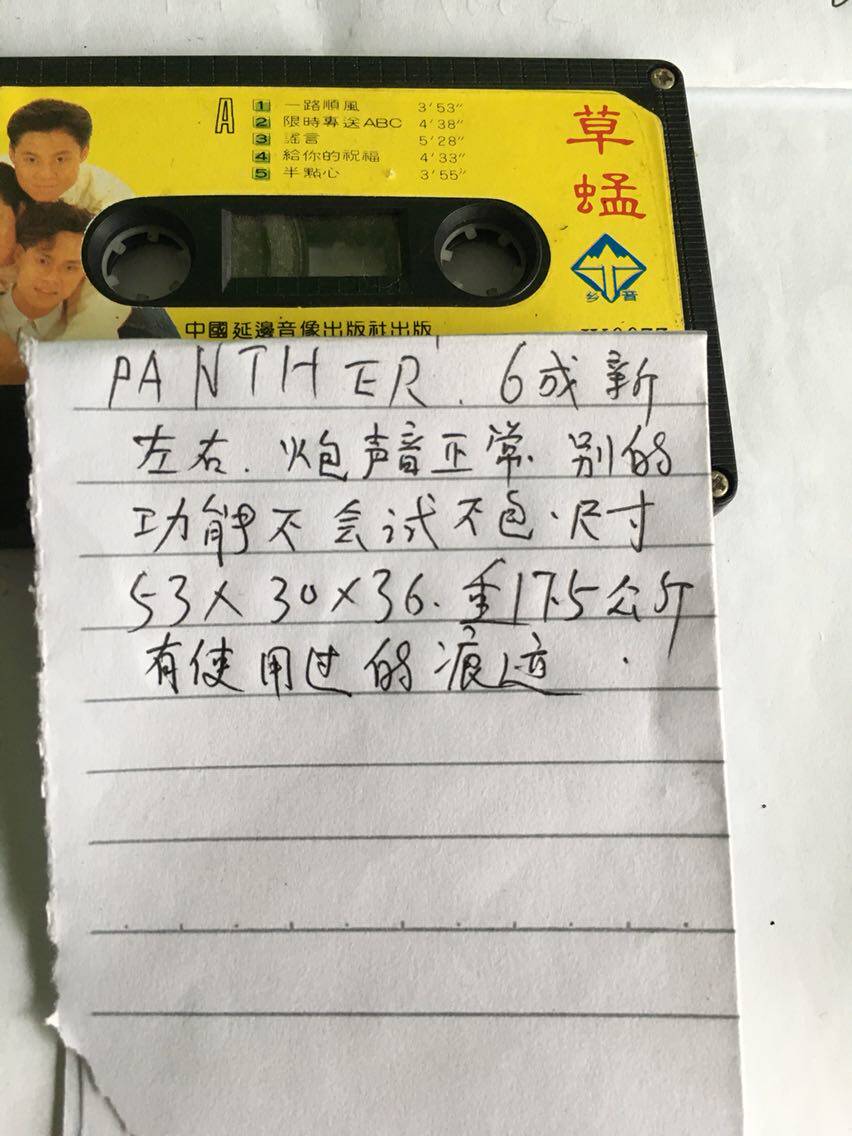 A
1 一路順風 3'53"
2 限時專送ABC 4'38"
3 謠言 5'28"
4 給你的祝福 4'33"
5 半點心 3'55"
草蜢
乡音
中國延邊音像出版社出版
PANTHER. 6成新
左右. 炮声音正常. 别的
功能不会试不包. 尺寸
53X30X36. 重17.5公斤
有使用过的痕迹.